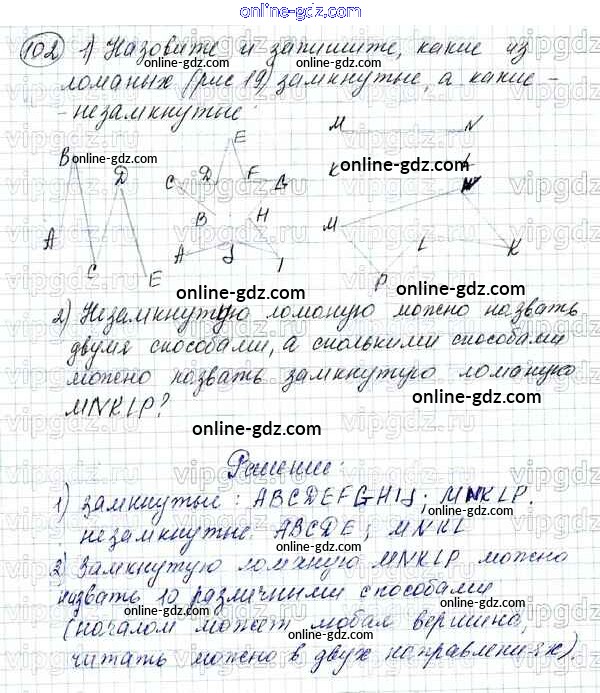 online-gdz.com
102 1) Назовите и запишите, какие из
ломаных (рис 19) замкнутые, а какие -
- незамкнутые:
online-gdz.com
B D C D E F G
M N
online-gdz.com
K
A C E
B H
A J I
M N
L K
P
online-gdz.com
2) Незамкнутую ломаную можно назвать
двумя способами, а сколькими способами
online-gdz.com
можно назвать замкнутую ломаную
MNKLP?
online-gdz.com
Решение:
1) замкнутые: ABCDEFGHIJ; MNKLP.
online-gdz.com
незамкнутые: ABCDE; MNKL
online-gdz.com
2) Замкнутую ломаную MNKLP можно
online-gdz.com
назвать 10 различными способами
(началом может любая вершина,
online-gdz.com
читать можно в двух направлениях).
online-gdz.com
vipgdz.ru